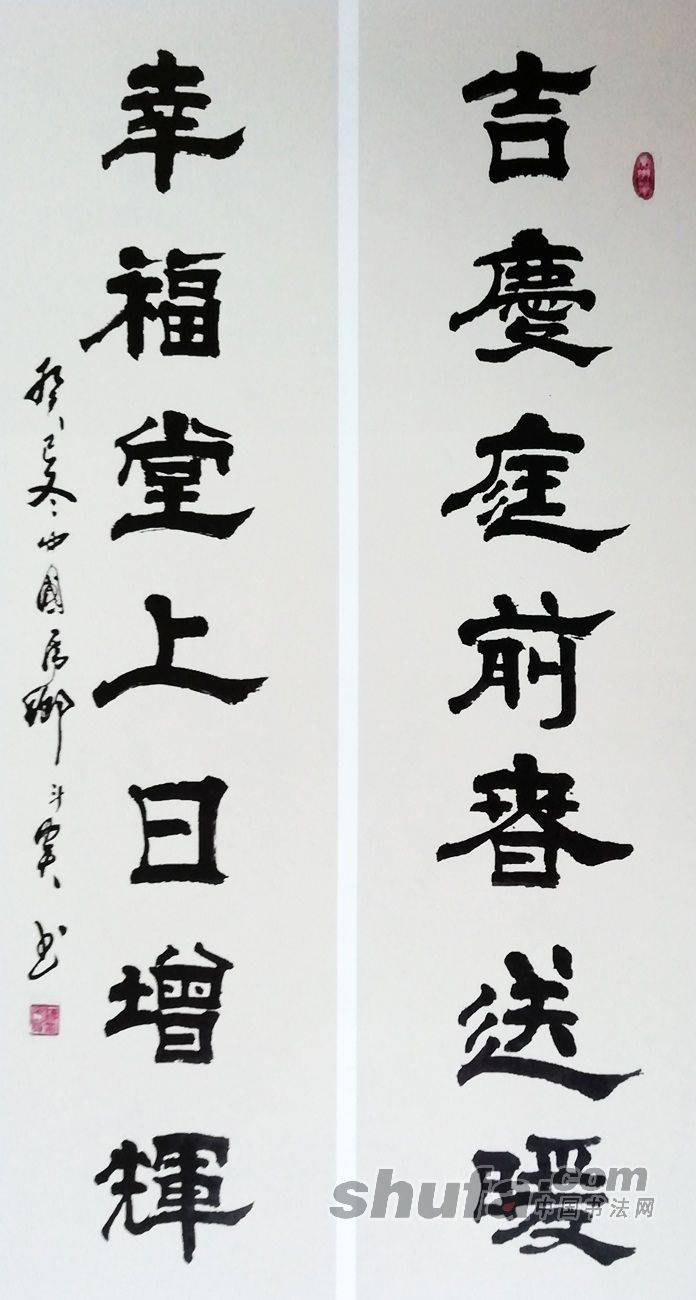 吉慶庭前春送暖
幸福堂上日增輝
癸巳冬中國
斗
书
shufa.com
中国书法网